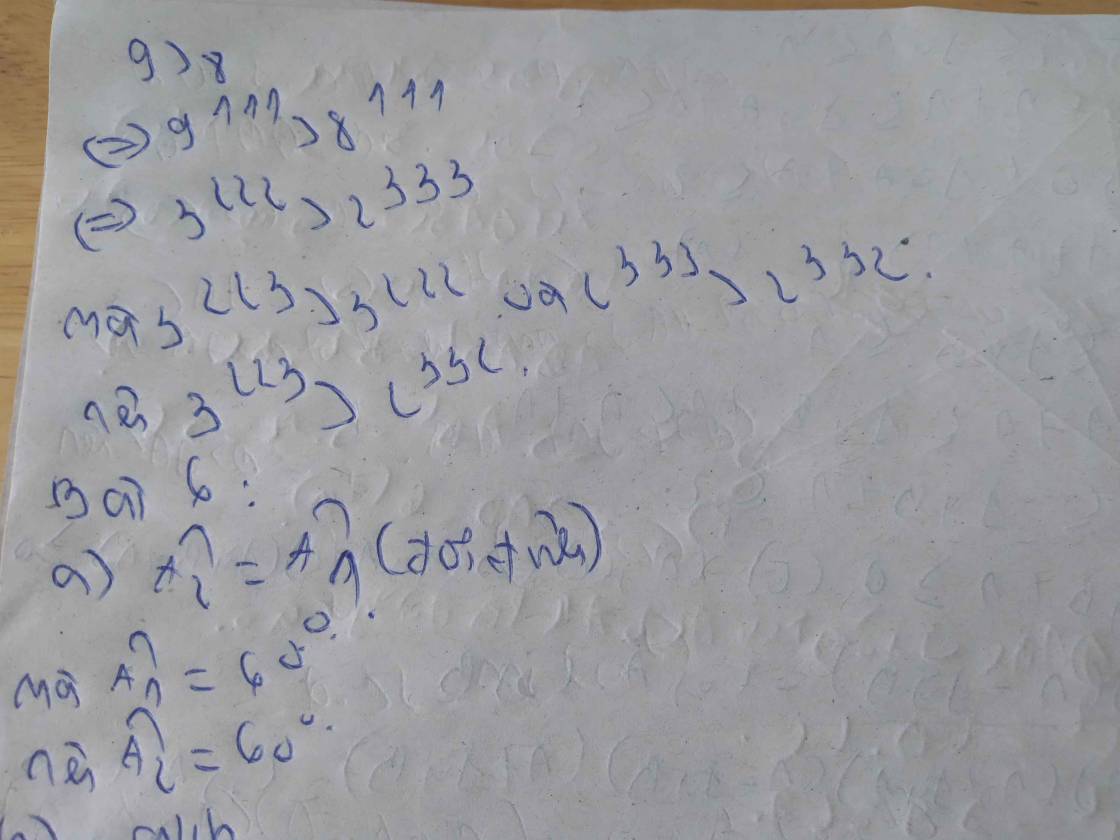 9 > 8
(=) 9^111 > 8^111
(=) 3^222 > 2^333
mà 3^223 > 3^222 và 2^333 > 2^332.
nên 3^223 > 2^332.
Bài 6:
a) Â2 = Â1 (đối đỉnh)
mà Â1 = 60°.
nên Â2 = 60°.
b)